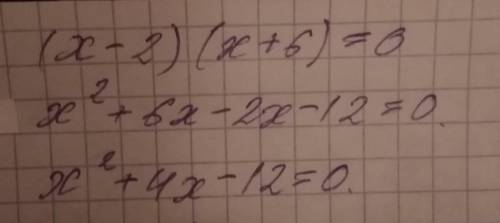 (x-2)(x+6)=0
x²+6x-2x-12=0.
x²+4x-12=0.